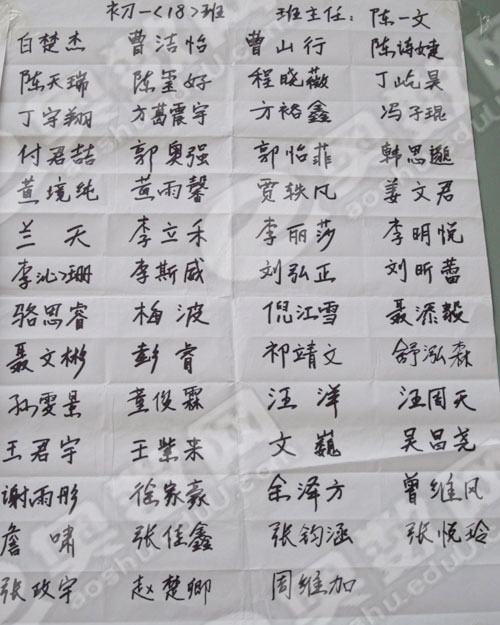 初一(18)班 班主任: 陈一文
白楚杰 曹洁怡 曹山行 陈诗婕
陈天瑞 陈玺好 程晓薇 丁屹昊
丁宇翔 方葛震宇 方裕鑫 冯子琨
付君喆 郭奥强 郭怡菲 韩思
黄境纯 黄雨馨 贾轶凡 姜文君
兰天 李立禾 李丽莎 李明悦
李沁珊 李斯威 刘弘正 刘昕蕾
骆思睿 梅波 倪江雪 聂添毅
聂文彬 彭睿 祁靖文 舒泓森
孙雯景 童俊霖 汪洋 汪周天
王君宇 王紫来 文巍 吴昌尧
谢雨彤 徐家豪 余泽方 曾维风
詹啸 张佳鑫 张钧涵 张悦玲
张政宇 赵楚卿 周维加
奥数网
aoshu.eduu.com